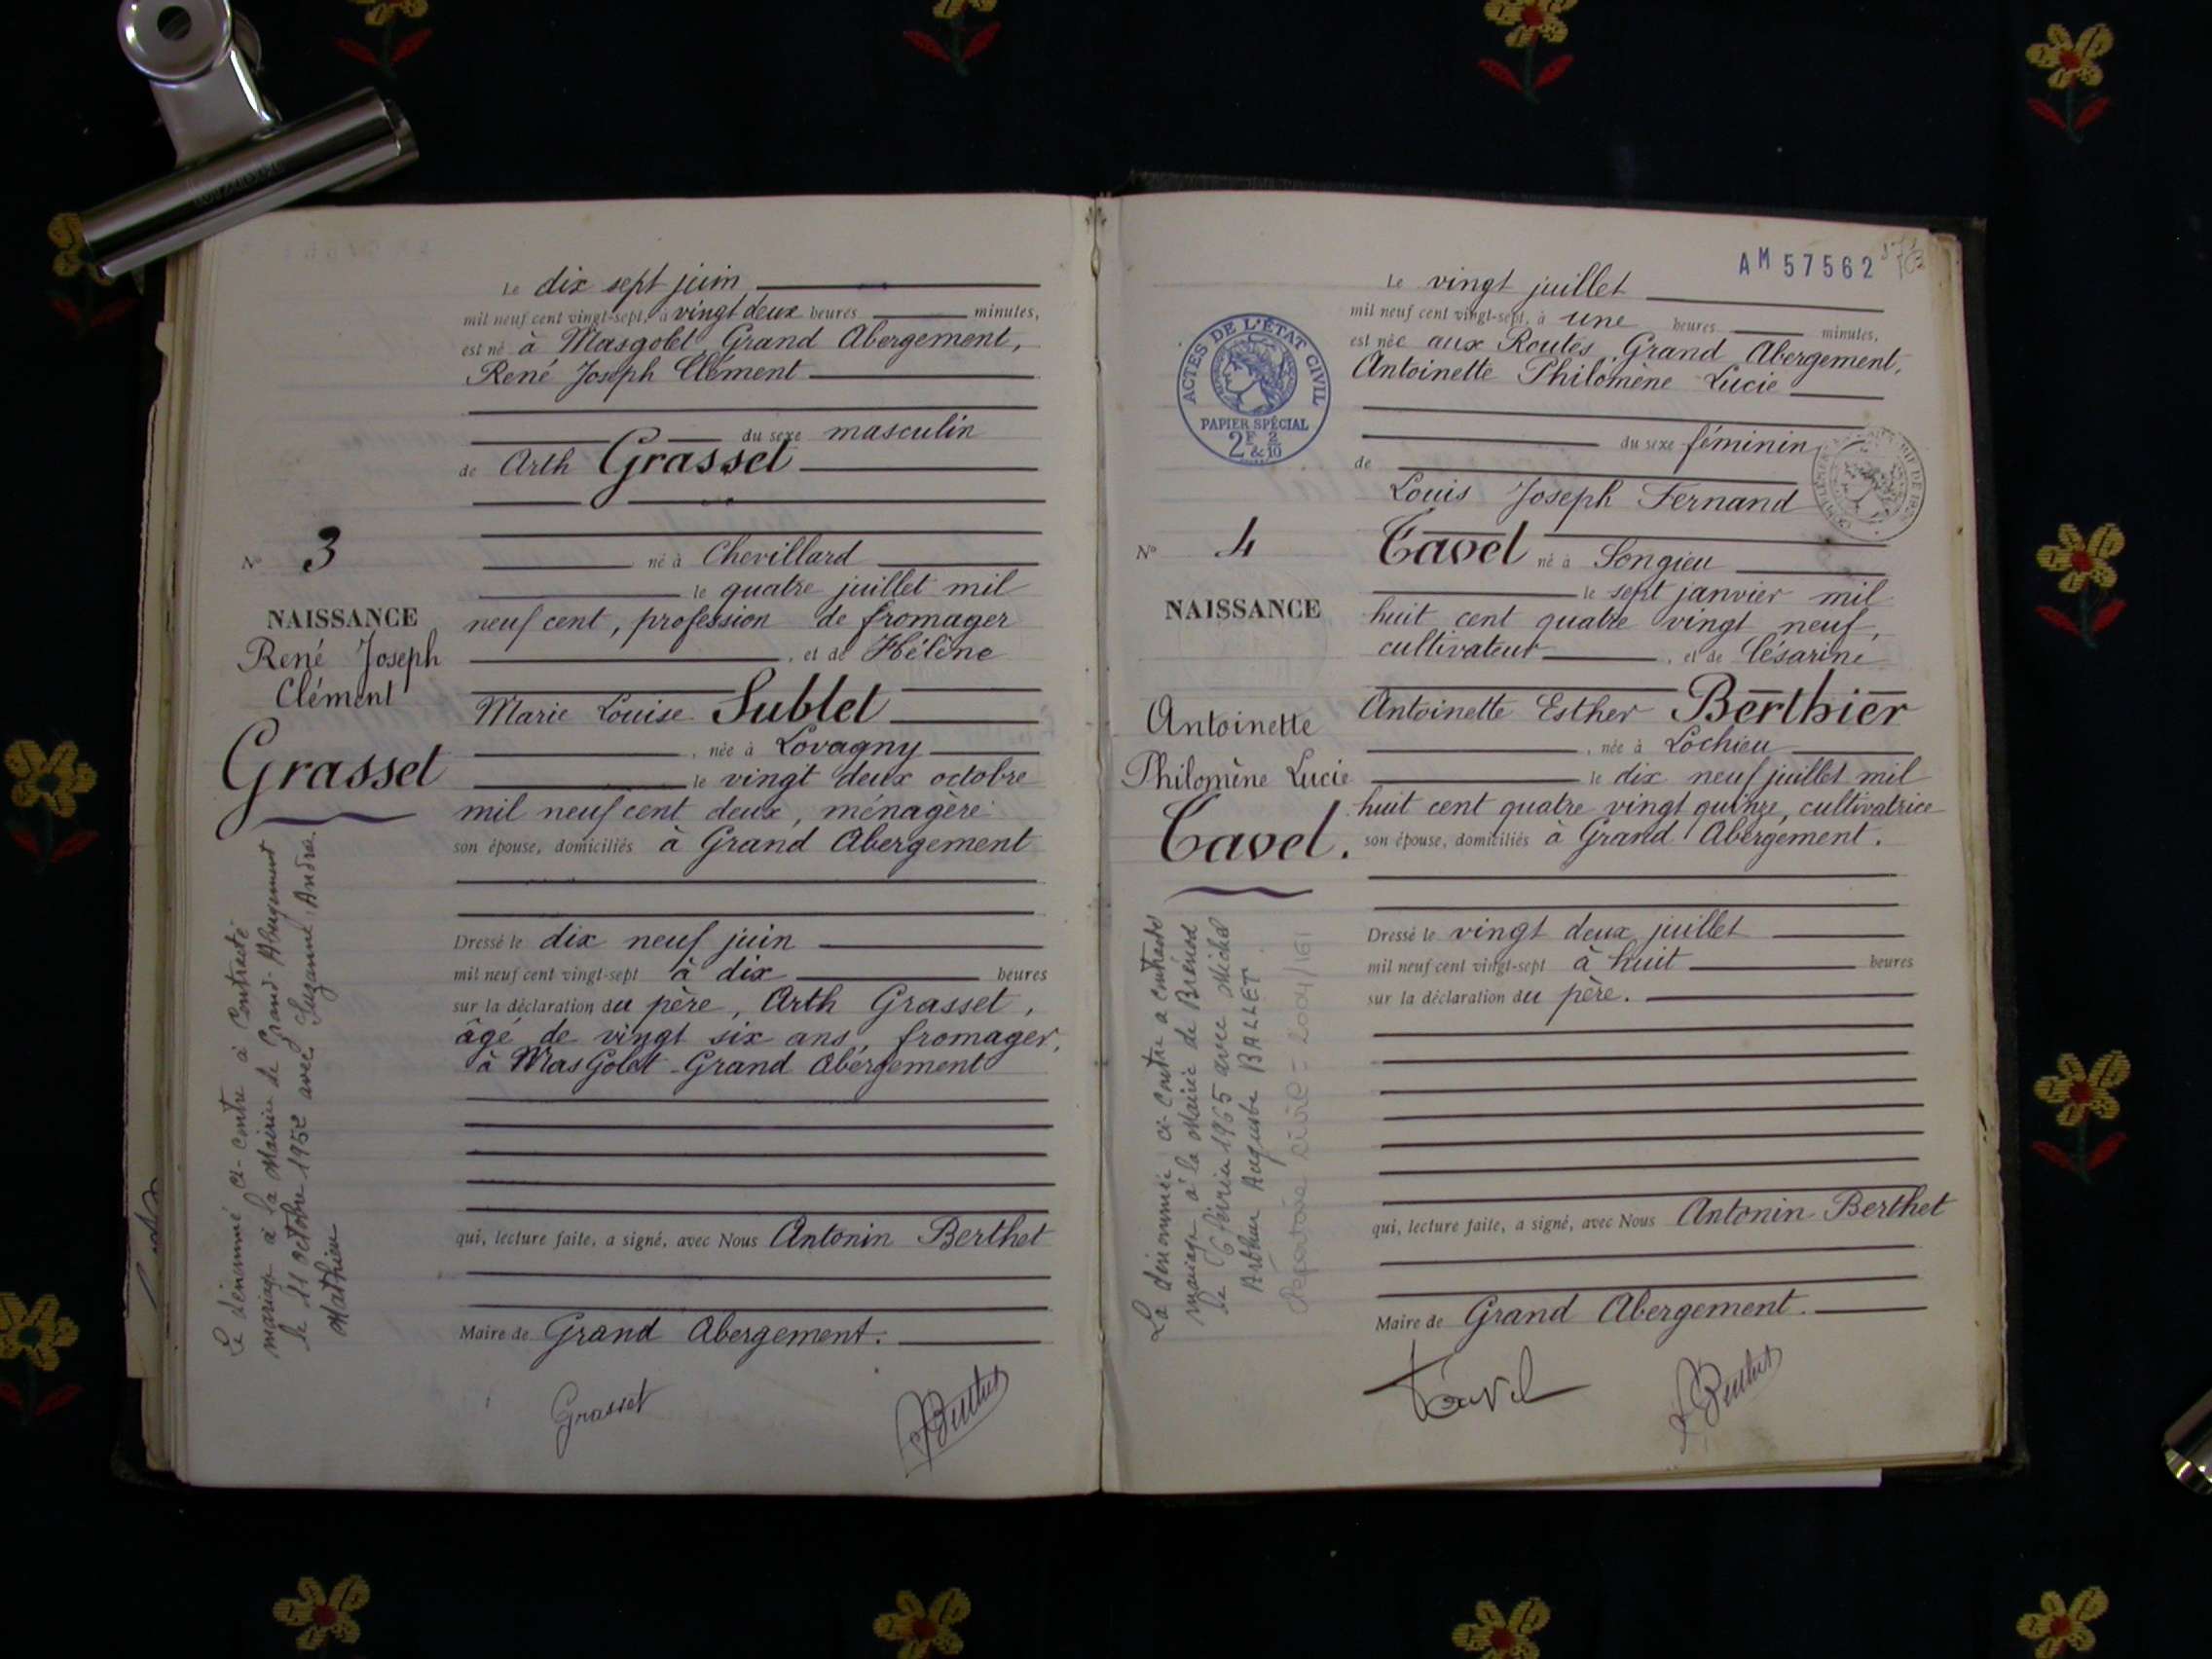 Le dix sept juin
mil neuf cent vingt-sept, à vingt deux heures minutes,
est né à Masgolet Grand Abergement,
René Joseph Clément
du sexe masculin
de Arth Grasset
né à Chevillard
le quatre juillet mil
neuf cent, profession de fromager
, et de Hélène
Marie Louise Sublet
, née à Lovagny
le vingt deux octobre
mil neuf cent deux, ménagère
son épouse, domiciliés à Grand Abergement
Dressé le dix neuf juin
mil neuf cent vingt-sept à dix heures
sur la déclaration du père, Arth Grasset,
âgé de vingt six ans, fromager,
à Mas Golet - Grand Abergement
qui, lecture faite, a signé, avec Nous Antonin Berthet
Maire de Grand Abergement.
Grasset
N° 3
NAISSANCE
René Joseph
Clément
Grasset
Le dénommé ci-contre a contracté
mariage à la Mairie de Grand-Abergement
le 11 octobre 1952 avec Suzanne Andréa
Mathieu
AM 57562
Le vingt juillet
mil neuf cent vingt-sept, à une heures minutes,
est née aux Routes Grand Abergement,
Antoinette Philomène Lucie
du sexe féminin
de
Louis Joseph Fernand
Tavel né à Songieu
le sept janvier mil
huit cent quatre vingt neuf,
cultivateur , et de Césarine
Antoinette Esther Berthier
, née à Lochieu
le dix neuf juillet mil
huit cent quatre vingt quinze, cultivatrice
son épouse, domiciliés à Grand Abergement.
Dressé le vingt deux juillet
mil neuf cent vingt-sept à huit heures
sur la déclaration du père.
qui, lecture faite, a signé, avec Nous Antonin Berthet
Maire de Grand Abergement.
Tavel
ACTES DE L'ÉTAT CIVIL
PAPIER SPÉCIAL
2F & 2/10
N° 4
NAISSANCE
Antoinette
Philomène Lucie
Tavel.
La dénommée ci-contre a contracté
mariage à la Mairie de Brénod
le 6 février 1965 avec Michel
Arthur Auguste BALLET.
Répertoire civil = 2004/161